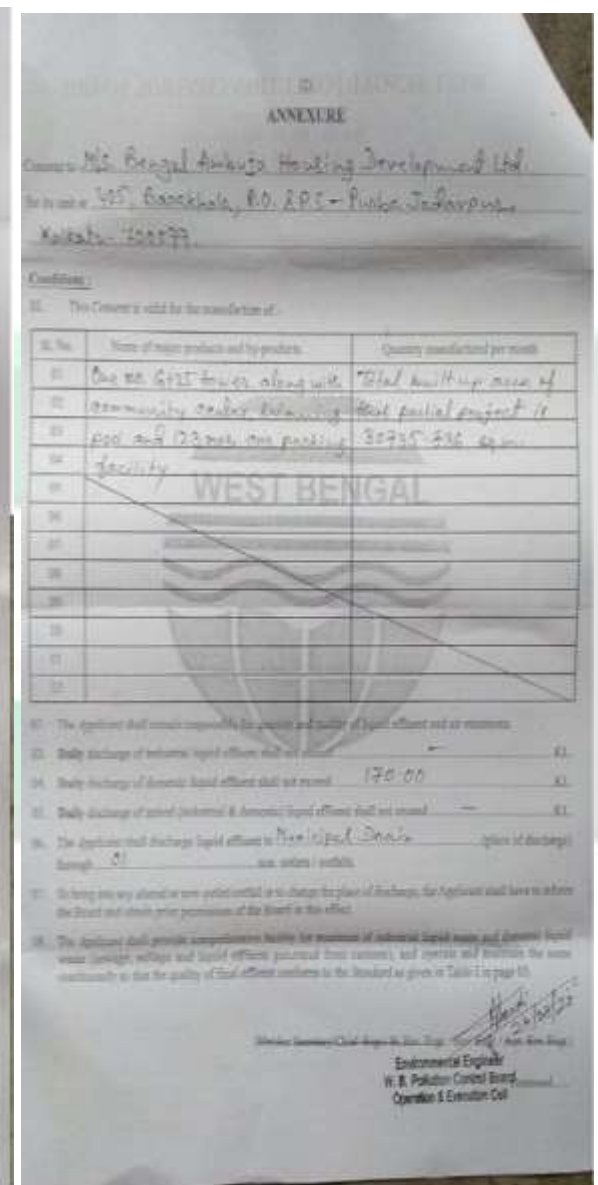 ANNEXURE
Consent to M/S. Bengal Ambuja Housing Development Ltd.
for its unit at 405, Barakhola, P.O. & P.S - Purba Jadavpur,
Kolkata - 700099.
Conditions :
01. This Consent is valid for the manufacture of :-
Sl. No. Name of major products and by-products Quantity manufactured per month
01 One no. G+35 tower along with Total built up area of
02 community center, pool partial project is
03 and 123 nos. car parking 30735.736 sq.m.
04 facility
05 WEST BENGAL
06
07
08
09
10
11
12
02. The Applicant shall remain responsible for quantity and quality of liquid effluent and air emissions.
03. Daily discharge of industrial liquid effluent shall not exceed - KL
04. Daily discharge of domestic liquid effluent shall not exceed 170.00 KL
05. Daily discharge of mixed (industrial & domestic) liquid effluent shall not exceed — KL
06. The Applicant shall discharge liquid effluent to Municipal Drain (place of discharge)
through 01 nos. outlets / outfalls.
07. To bring into any altered or new outlet/outfall or to change the place of discharge, the Applicant shall have to inform
the Board and obtain prior permission of the Board to this effect.
08. The Applicant shall provide comprehensive facility for treatment of industrial liquid waste and domestic liquid
waste (sewage, sullage and liquid effluent generated from canteen), and operate and maintain the same
continuously so that the quality of final effluent conforms to the Standard as given in Table I in page
Environmental Engineer
W. B. Pollution Control Board
Operation & Execution Cell